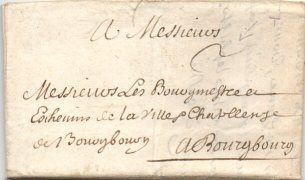 A Messieurs
Messieurs Les Bourgmestre et
Eschevins de la Ville & Chatellenie
de Bourgbourg
a Bourgbourg